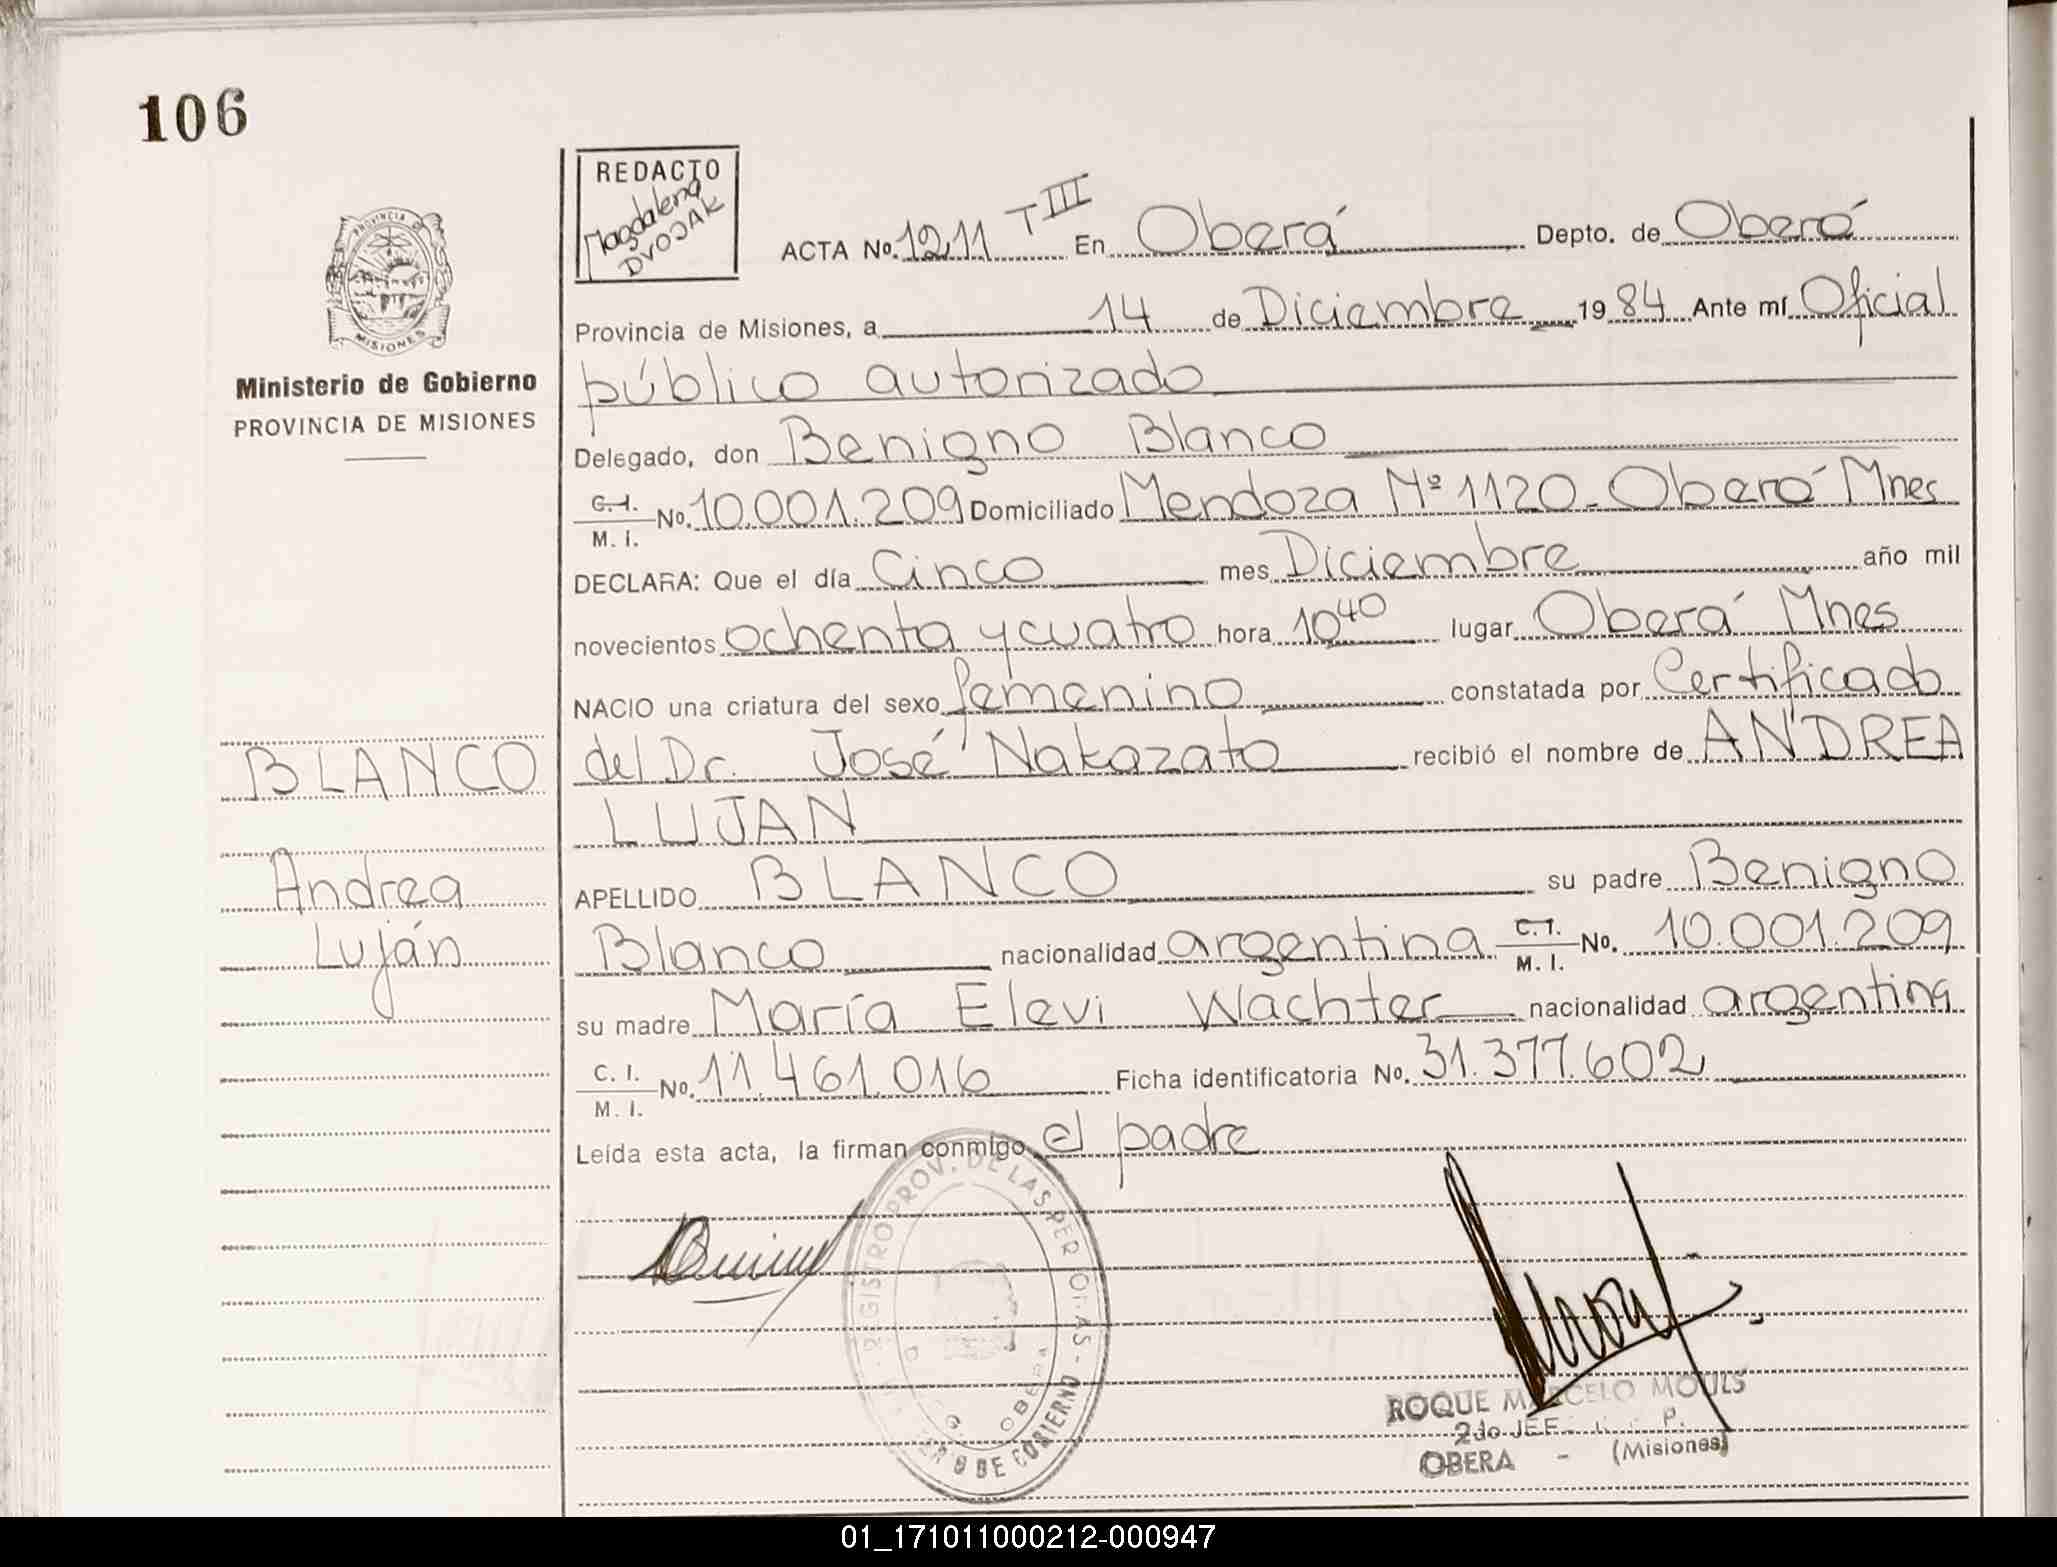 106
REDACTO
Magdalena
DVOJAK
ACTA No. 1211 T III En Oberá Depto. de Oberá
Provincia de Misiones, a 14 de Diciembre 1984 Ante mí Oficial
público autorizado
Delegado, don Benigno Blanco
C.I. M. I. No. 10.001.209 Domiciliado Mendoza Nº 1120 - Oberá Mnes
DECLARA: Que el día Cinco mes Diciembre año mil
novecientos ochenta y cuatro hora 10 40 lugar Oberá Mnes
NACIO una criatura del sexo femenino constatada por Certificado
del Dr. José Nakazato recibió el nombre de ANDREA
LUJAN
APELLIDO BLANCO su padre Benigno
Blanco nacionalidad argentina C.I. M. I. No. 10.001.209
su madre María Elevi Wachter nacionalidad argentina
C. I. M. I. No. 11.461.016 Ficha identificatoria No. 31.377.602
Leída esta acta, la firman conmigo el padre
PROVINCIA D MISIONES
Ministerio de Gobierno
PROVINCIA DE MISIONES
BLANCO
Andrea
Luján
REGISTRO PROV. DE LAS PERSONAS - DE GOBIERNO
OBERA
ROQUE MARCELO MOULS
2do JEF P.
OBERA - (Misiones)
01_171011000212-000947